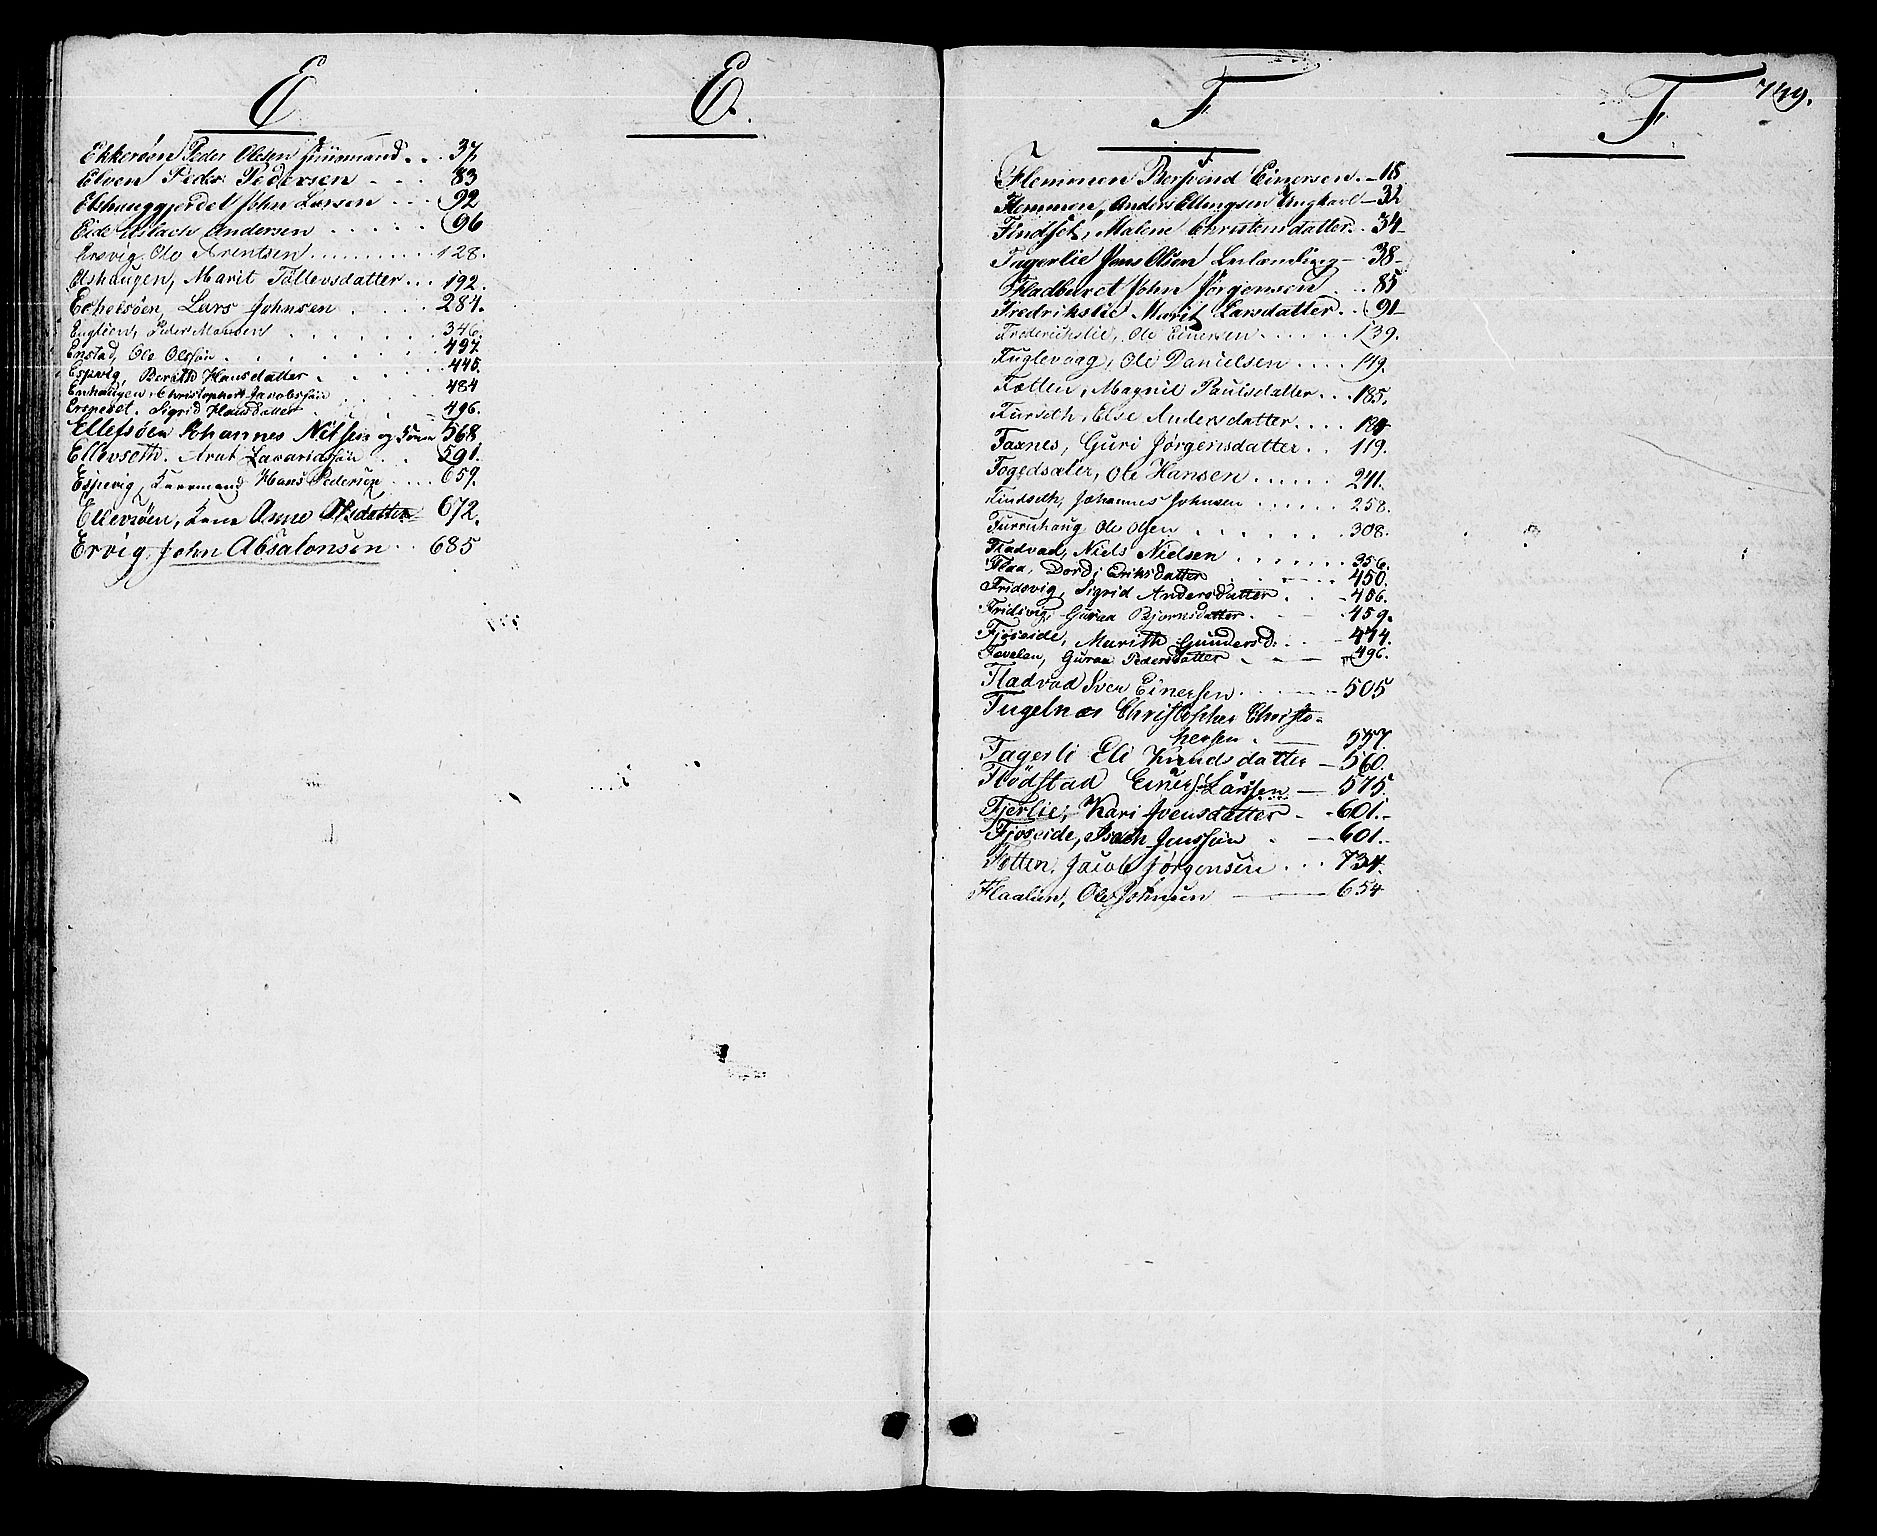 E
Ekkerøen Peder Olesen Huusmand 37
Elven Peder Pedersen 83
Elshauggjerdet John Larsen 92
Eide Andersen 96
Ersvig Ole Arentsen 128.
Elshaugen, Marit Tollevsdatter 192.
Echelsöen, Lars Johnsen 284.
Englien, Peder Monsen 346.
Enstad, Ole Olssön 497.
Espevig, Berith Hansdatter 445.
Enhaugen, Christopher Jacobssön 484
Sigrid Hansdatter 496.
Ellefsöen Johannes Nilsen og Kone 568
Ellevseth. Arnt 591.
Espevig, Huusmand Hans Pedersen 659.
Ellevsöen, Kone Anne Olsdatter 672.
Ervig, John Absalonsen 685
E.
F
Flemmen Bersvend Einersen. 18
Flemmen, Anders Ellingsen Ungkarl 32
Findset, Malene Christensdatter 34
Fagerlie Jens Olsen Inlemling 38
Fladbaret John Jörgensen 85
Fredrikslie Marit Larsdatter. 91
Frederikslie, Ole Einersen 139.
Fuglevaag, Ole Danielsen 149.
Fætten, Magnil Paulsdatter 185.
Furseth, Else Andersdatter
Faxnes, Guri Jörgensdatter 119.
Fogedsæter, Ole Hansen 241.
Findseth, Johannes Johnsen 258.
Furruhaug Ole Olsen 308.
Fladvad, Niels Nielsen 356.
Flaa, Dordi Eriksdatter 450.
Fridsvig, Sigrid Andersdatter 456.
Fridsvig, Guraa Bjornsdatter 459.
Fjöseide, Marith Gundersd. 474.
Guraa Pedersdatter 496.
Fladvad Iver Einersen 505
Fugelnæs Christopher Christo=
hersen 557.
Fagerli Eli Knudsdatter 560.
Flödstad Einer Larssen 575.
Fjerlie, Kari Svensdatter 601.
Fjöseide, Isach Jenssön 601.
Fetten, Jacob Jörgensen 734.
Flaalien, Ole Johnsen 654
F
749.